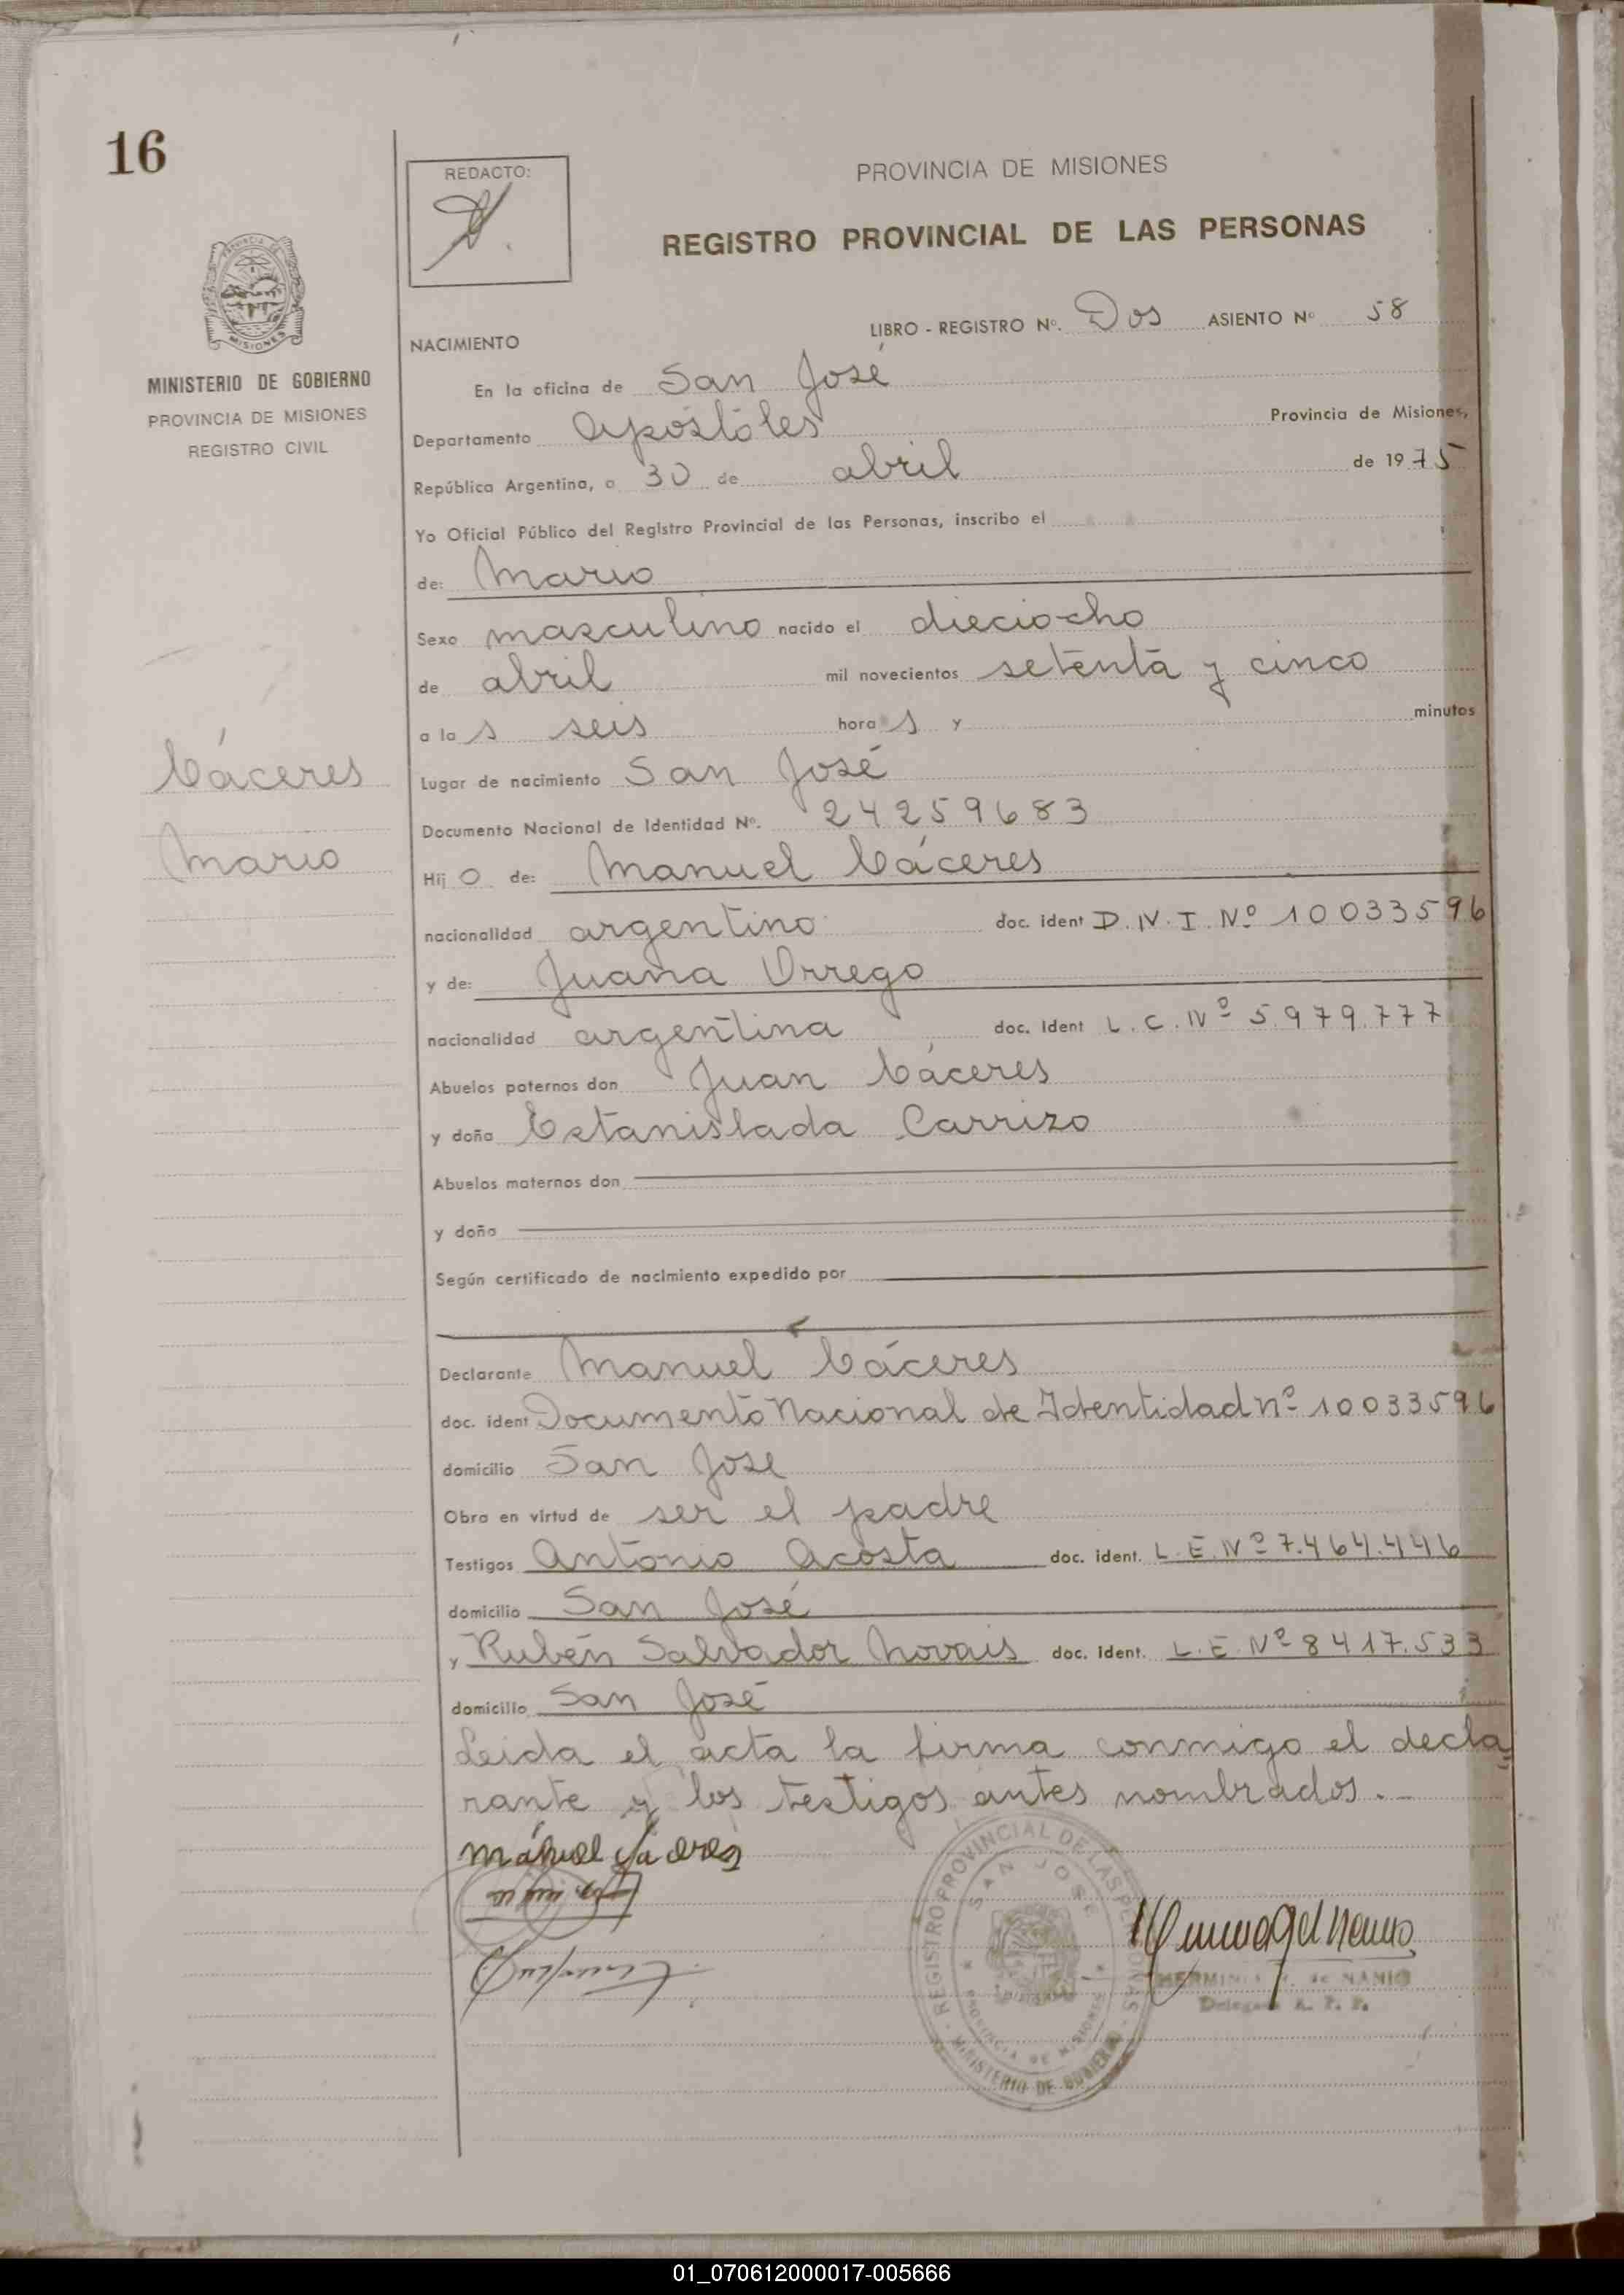 16
REDACTO:
PROVINCIA DE MISIONES
REGISTRO PROVINCIAL DE LAS PERSONAS
LIBRO - REGISTRO Nº. Dos ASIENTO Nº 58
NACIMIENTO
MISIONES
MINISTERIO DE GOBIERNO
PROVINCIA DE MISIONES
REGISTRO CIVIL
En la oficina de San José
Departamento Apóstoles Provincia de Misiones,
República Argentina, a 30 de abril de 1975
Yo Oficial Público del Registro Provincial de las Personas, inscribo el
de: Mario
Sexo masculino nacido el dieciocho
de abril mil novecientos setenta y cinco
a las seis horas y minutos
Cáceres
Mario
Lugar de nacimiento San José
Documento Nacional de Identidad Nº. 24259683
Hijo de: Manuel Cáceres
nacionalidad argentino doc. ident D.N.I. Nº 10033596
y de: Juana Orrego
nacionalidad argentina doc. ident L.C. Nº 5.979.777
Abuelos paternos don Juan Cáceres
y doña Estanislada Carrizo
Abuelos maternos don
y doña
Según certificado de nacimiento expedido por
Declarante Manuel Cáceres
doc. ident Documento Nacional de Identidad nº 10033596
domicilio San José
Obra en virtud de ser el padre
Testigos Antonio Acosta doc. ident. L.E. Nº 7.464.446
domicilio San José
y Rubén Salvador Novais doc. ident. L.E. Nº 8417.533
domicilio San José
Leida el acta la firma conmigo el decla
rante y los testigos antes nombrados.-
REGISTRO PROVINCIAL DE LAS PERSONAS - MINISTERIO DE GOBIERNO
SAN JOSE
PROVINCIA DE MISIONES
de NANIO
01_070612000017-005666